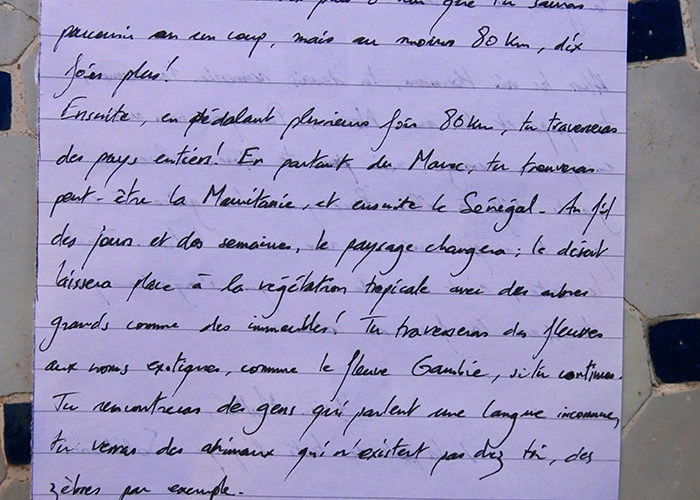 plus 8 km que tu sauras
parcourir en un coup, mais au moins 80 km, dix
fois plus!
Ensuite, en pédalant plusieurs fois 80 km, tu traverseras
des pays entiers! En partant du Maroc, tu trouveras
peut-être la Mauritanie, et ensuite le Sénégal. Au fil
des jours et des semaines, le paysage changera; le désert
laissera place à la végétation tropicale avec des arbres
grands comme des immeubles! Tu traverseras des fleuves
aux noms exotiques, comme le fleuve Gambie, si tu continues.
Tu rencontreras des gens qui parlent une langue inconnue,
tu verras des animaux qui n'existent pas chez toi, des
zèbres par exemple.